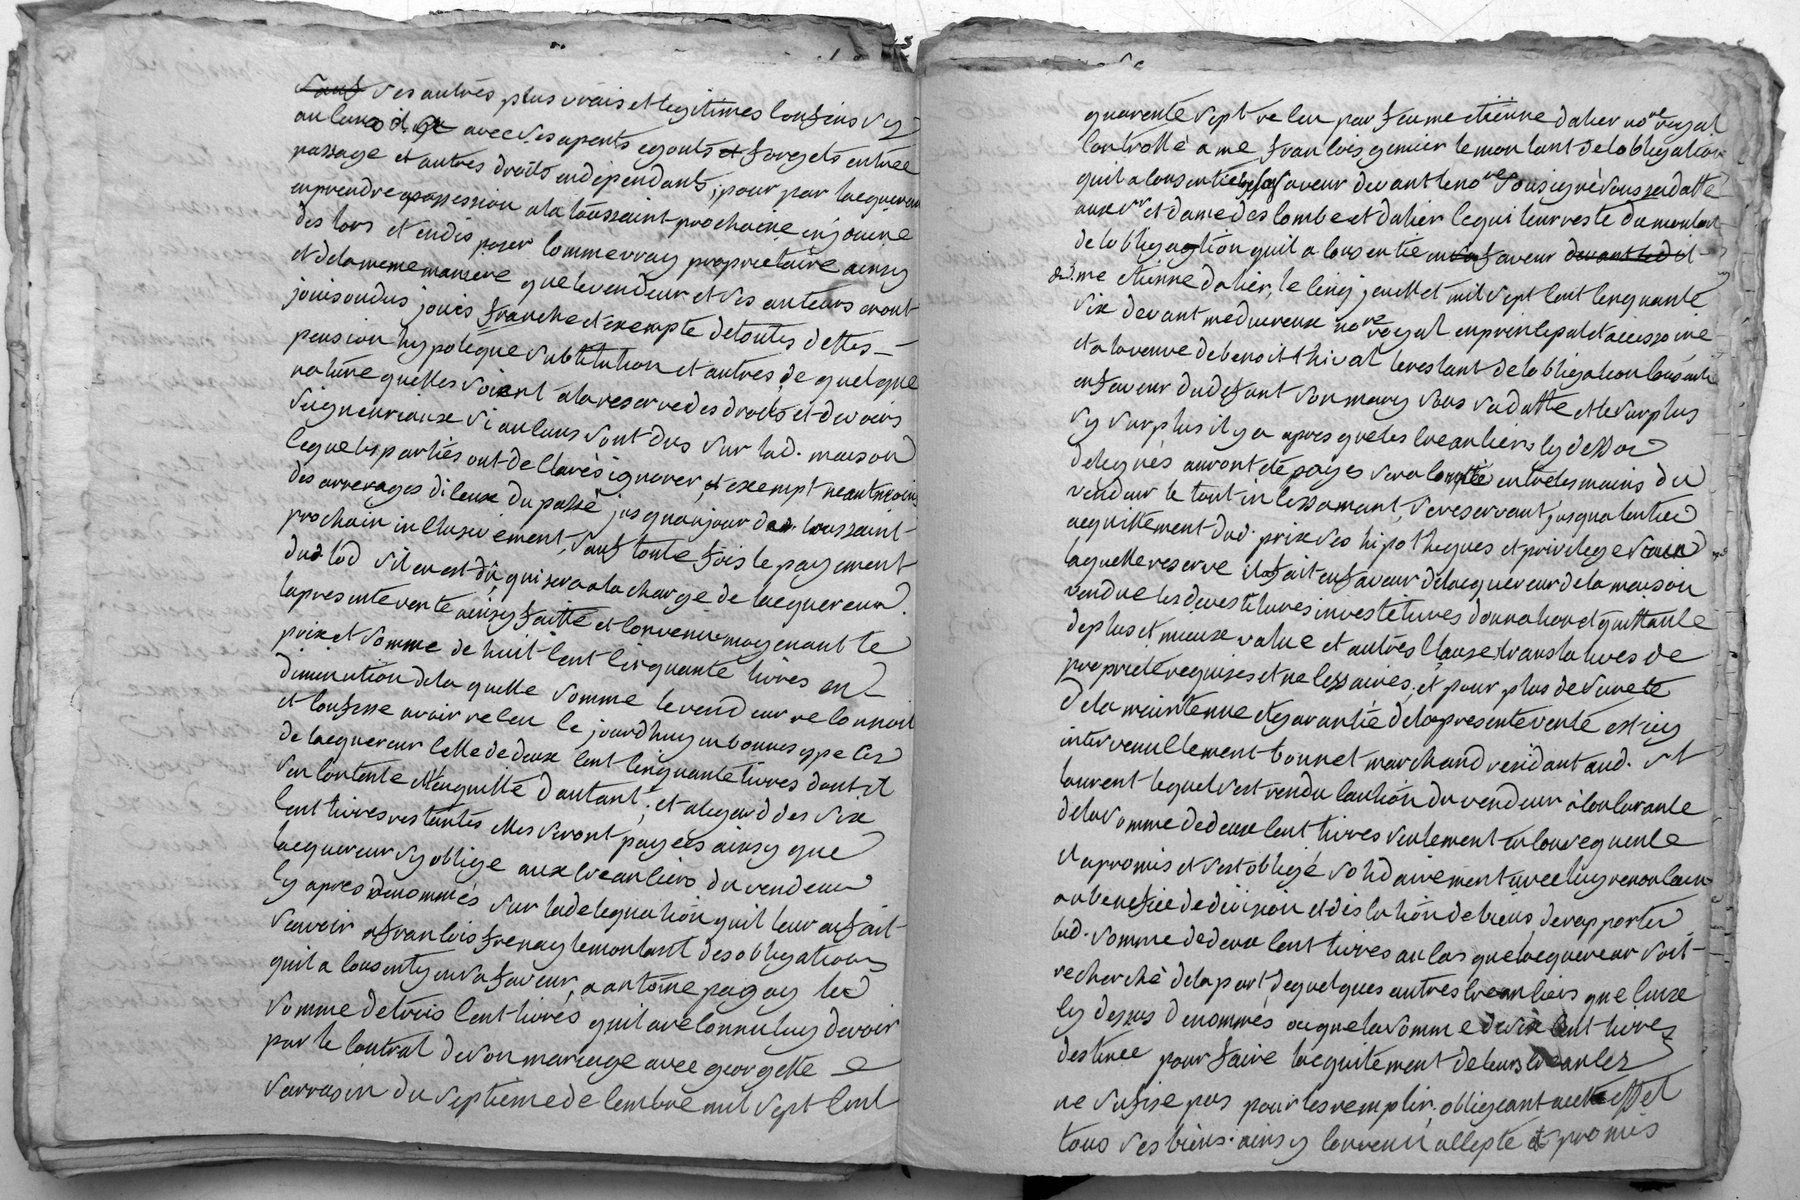 Sauf ses autres plus vrais et legitimes confins sy
au cano avec ses apents egouts et forgets entrée
passage et autres droits en dependants, pour par lacquereur
en prendre possession a la toussaint prochaine en jouire
des lors et en dis poser comme vray proprietaire ainsy
et de la meme maniere que le vendeur et ses auteurs en ont
joui ou dus jouir franche et exempte de toutes dettes
pension hypoteque substitution et autres de quelque
nature quelles soient a la reserve des droits et devoirs
seigneuriaux si aucuns sont dus sur lad. maison
ce que les parties ont dellarés ignorer, et exempt neantmoins
des arrerages diceux du passé jusqu'aujour de toussaint
prochain inclusivement, sauf toute fois le payement
dud lod sil en est dû, qui sera a la charge de lacquereur
la presente vente ainsy faitte et convenue moyenant le
prix et somme de huit cent cinquante livres en
diminution de la quelle somme le vendeur reconnoit
et confesse avoir receu le jourdhuy en bonnes especes
de lacquereur celle de deux cent cinquante livres dont il
sen contente et lacquitte d'autant; et a legard des six
cent livres restantes elles seront payées ainsy que
lacquereur sy oblige aux creanciers du vendeur
cy apres denommés sur la delegation quil leur en fait
scavoir a francois frenay le montant des obligations
quil a consenty en sa faveur, a antoine pagay la
somme de trois cent livres quil a reconnu luy devoir
par le contrat de son mariage avec georgette
sarrasin du sept decembre mil sept cent
quarente sept receu par feu me etienne dalier nore royal
controllé a me francois genier le montant de lobligation
quil a consentie en sa faveur devant le nore soussigné sous sa datte
aux sr et dame descombe et dalier ce qui leur reste du montant
de lobligation quil a consentie en sa faveur devant ledit
dud. me etienne dalier, le cinq juillet mil sept cent cinquante
six devant me duereux nore royal en principal et accessoire
et a la veuve de benoit thivat le restant de lobligation consentie
en faveur du defunt son mary sous sa datte et le surplus
sy surplus il y a apres que les creanciers cy dessus
delegués auront eté payés sera compté entre les mains du
vendeur le tout incessamant, se reservant, jusqua lentier
acquittement dud. prix ses hipotheques et privilege
laquelle reserve il a fait en faveur de lacquereur de la maison
vendue les devestitures investitures donnation et quittance
de plus et mieux value et autres clauses translatives de
proprieté requises et necessaires, et pour plus de sureté
de la maintenue et garantie de la presente vente est icy
intervenu clement bonnet marchand residant aud. st
laurent lequel sest rendu caution du vendeur a concurance
de la somme de deux cent livres seulement en consequence
il a promis et sest obligé solidairement avec luy renoncant
au benefice de division et discution de biens de rapporter
lad. somme de deux cent livres au cas que lacquereur soit
recherché de la part de quelques autres creanciers que ceux
cy dessus denommés ou que la somme de six cent livres
destinée pour faire lacquitement de leurs creances
ne sufise pas pour les remplir, obligeant a cet effet
tous ses biens. ainsy convenu accepté et promis